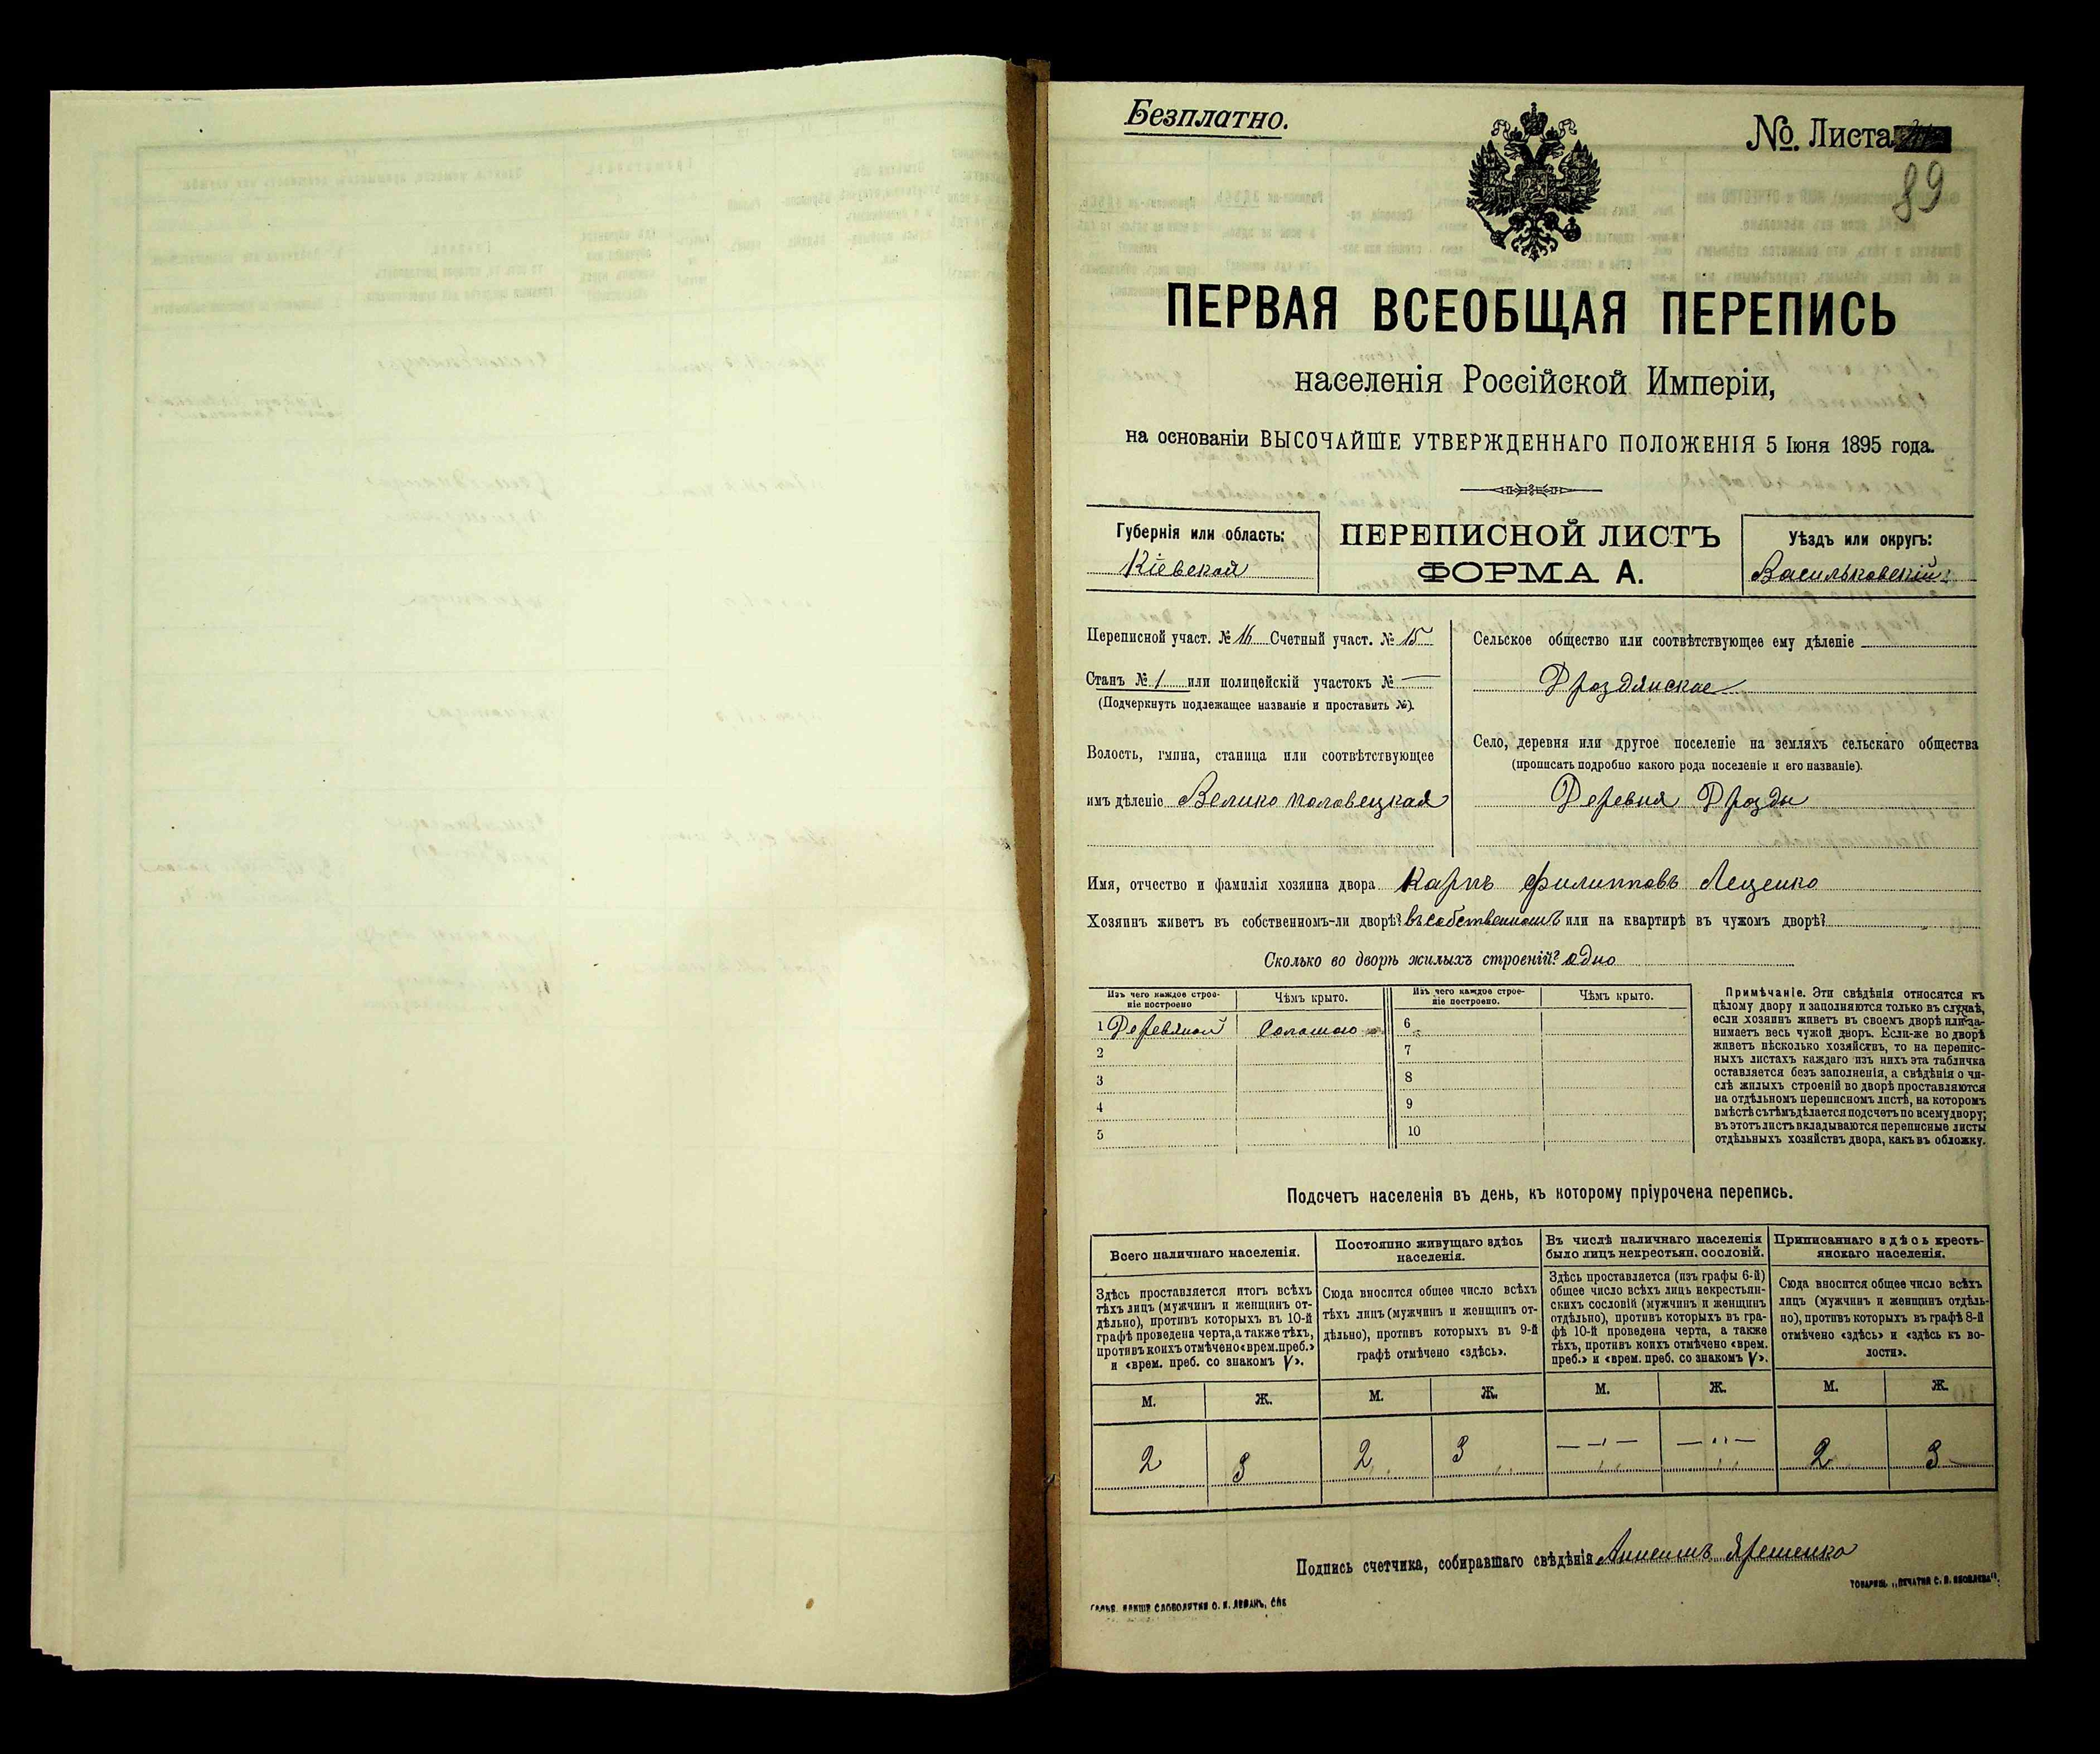 Безплатно.
№. Листа
89
ПЕРВАЯ ВСЕОБЩАЯ ПЕРЕПИСЬ
населенія Россійской Имперіи,
на основаніи ВЫСОЧАЙШЕ УТВЕРЖДЕННАГО ПОЛОЖЕНІЯ 5 Іюня 1895 года.
Губернія или область:
Кіевская
ПЕРЕПИСНОЙ ЛИСТЪ
ФОРМА А.
Уѣздъ или округъ:
Васильковскій
Переписной участ. № 16 Счетный участ. № 15
Станъ № 1 или полицейскій участокъ № —
(Подчеркнуть подлежащее названіе и проставить №).
Волость, гмина, станица или соотвѣтствующее
имъ дѣленіе Велико половецкая
Сельское общество или соотвѣтствующее ему дѣленіе
Дроздянское
Село, деревня или другое поселеніе на земляхъ сельскаго общества
(прописать подробно какого рода поселеніе и его названіе).
Деревня Дрозды
Имя, отчество и фамилія хозяина двора Карпъ Филипповъ Лещенко
Хозяинъ живетъ въ собственномъ-ли дворѣ? въ собственномъ или на квартирѣ въ чужомъ дворѣ?
Сколько во дворѣ жилыхъ строеній? одно
Изъ чего каждое строе-
ніе построено
Чѣмъ крыто.
Изъ чего каждое строе-
ніе построено.
Чѣмъ крыто.
1 Деревяной Соломою
2
3
4
5
6
7
8
9
10
Примѣчаніе. Эти свѣдѣнія относятся къ
цѣлому двору и заполняются только въ случаѣ,
если хозяинъ живетъ въ своемъ дворѣ или за-
нимаетъ весь чужой дворъ. Если-же во дворѣ
живетъ нѣсколько хозяйствъ, то на перепис-
ныхъ листахъ каждаго изъ нихъ эта табличка
оставляется безъ заполненія, а свѣдѣнія о чи-
слѣ жилыхъ строеній во дворѣ проставляются
на отдѣльномъ переписномъ листѣ, на которомъ
вмѣстѣ съ тѣмъ дѣлается подсчетъ по всему двору;
въ этотъ листъ вкладываются переписные листы
отдѣльныхъ хозяйствъ двора, какъ въ обложку.
Подсчетъ населенія въ день, къ которому пріурочена перепись.
Всего наличнаго населенія.
Здѣсь проставляется итогъ всѣхъ
тѣхъ лицъ (мужчинъ и женщинъ от-
дѣльно), противъ которыхъ въ 10-й
графѣ проведена черта, а также тѣхъ,
противъ коихъ отмѣчено «врем. преб.»
и «врем. преб. со знакомъ V».
Постоянно живущаго здѣсь
населенія.
Сюда вносится общее число всѣхъ
тѣхъ лицъ (мужчинъ и женщинъ от-
дѣльно), противъ которыхъ въ 9-й
графѣ отмѣчено «здѣсь».
Въ числѣ наличнаго населенія
было лицъ некрестьян. сословій.
Здѣсь проставляется (изъ графы 6-й)
общее число всѣхъ лицъ некрестьян-
скихъ сословій (мужчинъ и женщинъ
отдѣльно), противъ которыхъ въ гра-
фѣ 10-й проведена черта, а также
тѣхъ, противъ коихъ отмѣчено «врем.
преб.» и «врем. преб. со знакомъ V».
Приписаннаго здѣсь кресть-
янскаго населенія.
Сюда вносится общее число всѣхъ
лицъ (мужчинъ и женщинъ отдѣль-
но), противъ которыхъ въ графѣ 8-й
отмѣчено «здѣсь» и «здѣсь къ во-
лости».
М. Ж. М. Ж. М. Ж. М. Ж.
2 3 2 3 — " — — " — 2 3
Подпись счетчика, собиравшаго свѣдѣнія Яременко